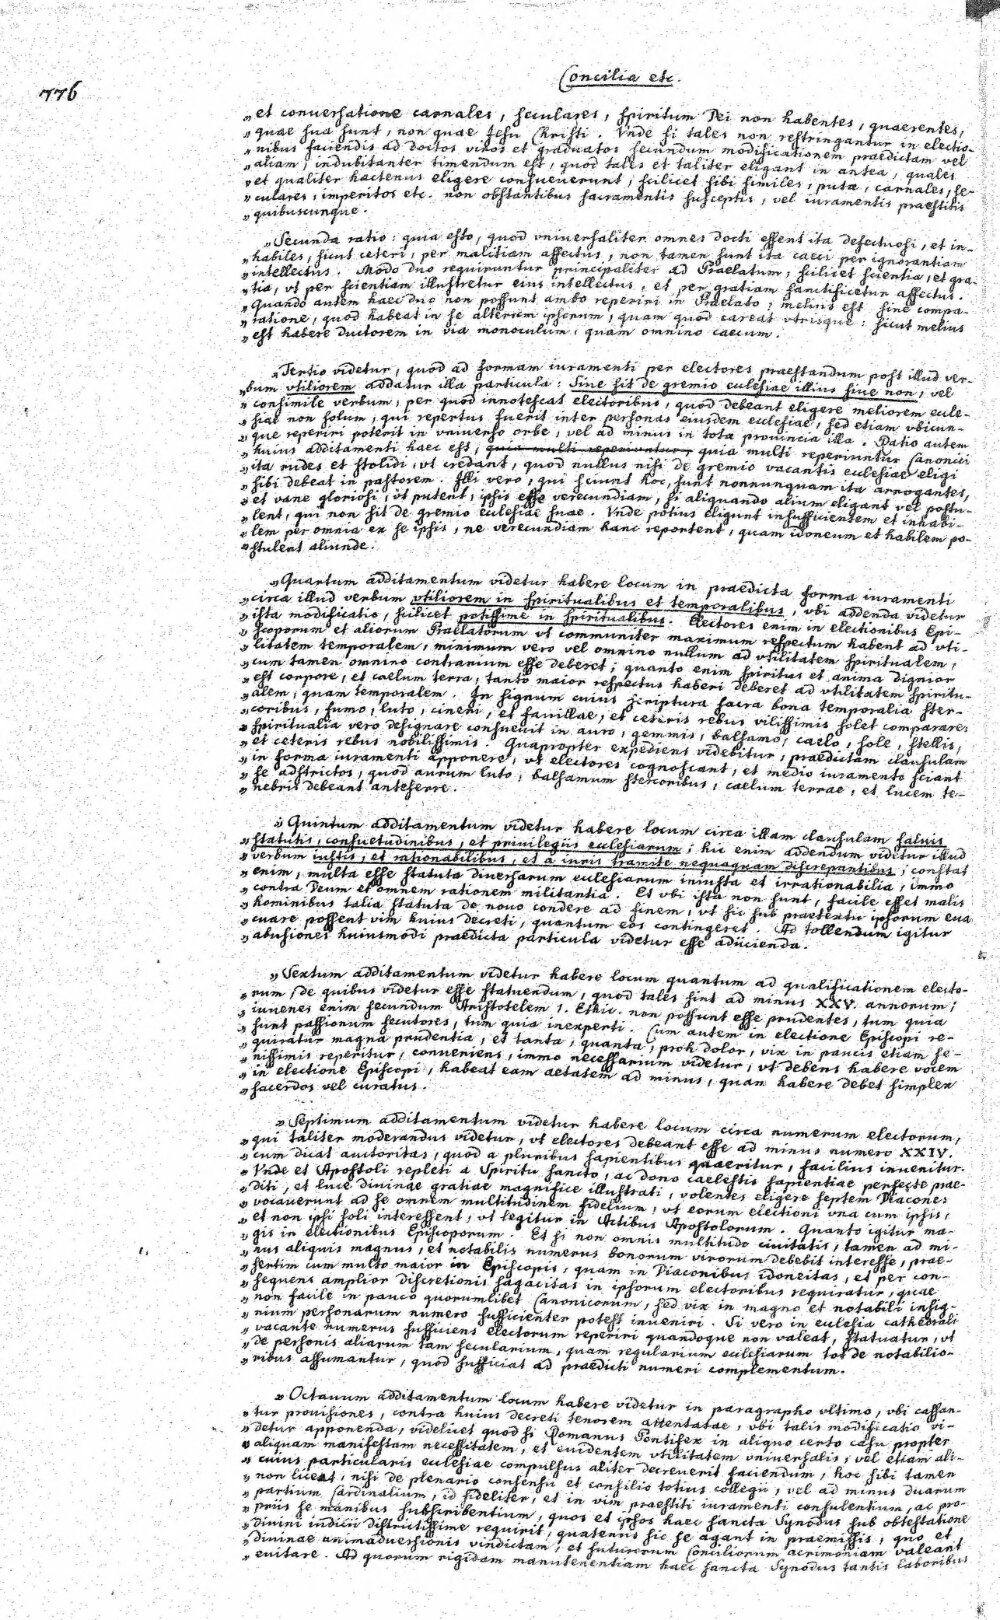 776
Concilia etc.
„ et conuersatione carnales, seculares, spiritum Dei non habentes, quaerentes,
„ quae sua sunt, non quae Jesu Christi. Vnde si tales non restringantur in electio-
„ nibus faciendis ad doctos viros et graduatos secundum modificationem praedictam vel
„ aliam, indubitanter timendum est, quod tales et taliter eligant in antea, quales
„ et qualiter hactenus eligere consueuerunt, scilicet sibi similes, puta, carnales, se-
„ culares, imperitos etc. non obstantibus sacramentis susceptis, vel iuramentis praestitis
„ quibuscunque.
„ Secunda ratio: quia esto, quod vniuersaliter omnes docti essent ita defectuosi, et in-
„ habiles, sicut ceteri, per malitiam affectus, non tamen sunt ita caeci per ignorantiam
„ intellectus. Modo duo requiruntur principaliter ad Praelatum, scilicet scientia, et gra-
„ tia, vt per scientiam illustretur eius intellectus, et per gratiam sanctificetur affectus.
„ Quando autem haec duo non possunt ambo reperiri in Praelato, melius est sine compa-
„ ratione, quod habeat in se alterum ipsorum, quam quod careat vtrisque: sicut melius
„ est habere ductorem in via monoculum, quam omnino caecum.
„ Tertio videtur, quod ad formam iuramenti per electores praestandum post illud ver-
„ bum vtiliorem addatur illa particula: Siue sit de gremio ecclesiae illius siue non, vel
„ consimile verbum, per quod innotescat electoribus, quod debeant eligere meliorem eccle-
„ siae non solum, qui repertus fuerit inter personas eiusdem ecclesiae, sed etiam vbicun-
„ que reperiri poterit in vniuerso orbe, vel ad minus in tota prouincia illa. Ratio autem
„ huius additamenti haec est, quia multi reperiuntur, quia multi reperiuntur Canonici
„ ita rudes et stolidi, vt credant, quod nullus nisi de gremio vacantis ecclesiae eligi
„ sibi debeat in pastorem. Illi vero, qui sciunt hoc, sunt nonnunquam ita arrogantes,
„ et vane gloriosi, vt putent, ipsis esse verecundiam, si aliquando alium eligant vel postu-
„ lent, qui non sit de gremio ecclesiae suae. Vnde potius eligunt insufficientem et inhabi-
„ lem per omnia ex se ipsis, ne verecundiam hanc reportent, quam idoneum et habilem po-
„ stulent aliunde.
„ Quartum additamentum videtur habere locum in praedicta forma iuramenti
„ circa illud verbum vtiliorem in spiritualibus et temporalibus, vbi addenda videtur
„ ista modificatio, scilicet potissime in spiritualibus. Electores enim in electionibus Epi-
„ scoporum et aliorum Praelatorum vt communiter maximum respectum habent ad vti-
„ litatem temporalem, minimum vero vel omnino nullum ad vtilitatem spiritualem,
„ cum tamen omnino contrarium esse deberet; quanto enim spiritus et anima dignior
„ est corpore, et caelum terra, tanto maior respectus haberi deberet ad vtilitatem spiritu-
„ alem, quam temporalem. In signum cuius scriptura sacra bona temporalia ster-
„ coribus, fumo, luto, cineri, et fauillae, et ceteris rebus vilissimis solet comparare;
„ spiritualia vero designare consueuit in auro, gemmis, balsamo, caelo, sole, stellis,
„ et ceteris rebus nobilissimis. Quapropter expediens videbitur, praedictam clausulam
„ in forma iuramenti apponere, vt electores cognoscant, et medio iuramento sciant
„ se adstrictos, quod aurum luto, balsamum stercoribus, caelum terrae, et lucem te-
„ nebris debeant anteferre.
„ Quintum additamentum videtur habere locum circa illam clausulam saluis
„ statutis, consuetudinibus, et priuilegiis ecclesiarum; hic enim addendum videtur illud
„ verbum iustis, et rationabilibus, et a iuris tramite nequaquam discrepantibus; constat
„ enim, multa esse statuta diuersarum ecclesiarum iniusta et irrationabilia, immo
„ contra Deum et omnem rationem militantia. Et vbi ista non sunt, facile esset malis
„ hominibus talia statuta de nouo condere ad finem, vt sic sub praetextu ipsorum eua
„ cuare possent vim huius decreti, quantum eos contingeret. Ad tollendum igitur
„ abusiones huiusmodi praedicta particula videtur esse adiicienda.
„ Sextum additamentum videtur habere locum quantum ad qualificationem electo-
„ rum, de quibus videtur esse statuendum, quod tales sint ad minus XXV. annorum;
„ iuuenes enim secundum Aristotelem 1. Ethic. non possunt esse prudentes, tum quia
„ sunt passionum secutores, tum quia inexperti. Cum autem in electione Episcopi re-
„ quiratur magna prudentia, et tanta, quanta, proh dolor, vix in paucis etiam se-
„ nissimis reperitur, conueniens, immo necessarium videtur, vt debens habere vocem
„ in electione Episcopi, habeat eam aetatem ad minus, quam habere debet simplex
„ sacerdos vel curatus.
„ Septimum additamentum videtur habere locum circa numerum electorum,
„ qui taliter moderandus videtur, vt electores debeant esse ad minus numero XXIV.
„ cum dicat auctoritas, quod a pluribus sapientibus quaeritur, facilius inuenitur.
„ Vnde et Apostoli repleti a Spiritu sancto, ac dono caelestis sapientiae perfecte prae-
„ diti, et luce diuinae gratiae magnifice illustrati, volentes eligere septem Diacones
„ vocauerunt ad se omnem multitudinem fidelium, vt eorum electioni vna cum ipsis,
„ et non ipsi soli interessent, vt legitur in Actibus Apostolorum. Quanto igitur ma-
„ gis in electionibus Episcoporum. Et si non omnis multitudo ciuitatis, tamen ad mi-
„ nus aliquis magnus, et notabilis numerus bonorum virorum debebit interesse, prae-
„ sertim cum multo maior in Episcopis, quam in Diaconibus idoneitas, et per con-
„ sequens amplior discretionis sagacitas in ipsorum electoribus requiratur, quae
„ non facile in pauco quorumlibet Canonicorum, sed vix in magno et notabili insig-
„ nium personarum numero sufficienter potest inueniri. Si vero in ecclesia cathedrali
„ vacante numerus sufficiens electorum reperiri quandoque non valeat, statuatur, vt
„ de personis aliarum tam secularium, quam regularium ecclesiarum tot de notabilio-
„ ribus assumantur, quod sufficiat ad praedicti numeri complementum.
„ Octauum additamentum locum habere videtur in paragrapho vltimo, vbi cassan-
„ tur prouisiones, contra huius decreti tenorem attentatae, vbi talis modificatio vi-
„ detur apponenda, videlicet quod si Romanus Pontifex in aliquo certo casu propter
„ aliquam manifestam necessitatem, et euidentem vtilitatem vniuersalis, vel etiam ali-
„ cuius particularis ecclesiae compulsus aliter decreuerit faciendum, hoc sibi tamen
„ non liceat, nisi de plenario consensu et consilio totius collegii, vel ad minus duarum
„ partium Cardinalium, id fideliter, et in vim praestiti iuramenti consulentium, ac pro-
„ priis se manibus subscribentium, quos et ipsos haec sancta Synodus sub obtestatione
„ diuini iudicii districtissime requirit, quatenus sic se agant in praemissis, quo et
„ diuinae animaduersionis vindictam, et futurorum Conciliorum acrimoniam valeant
„ euitare. Ad quorum rigidam manutenentiam haec sancta Synodus tantis laboribus